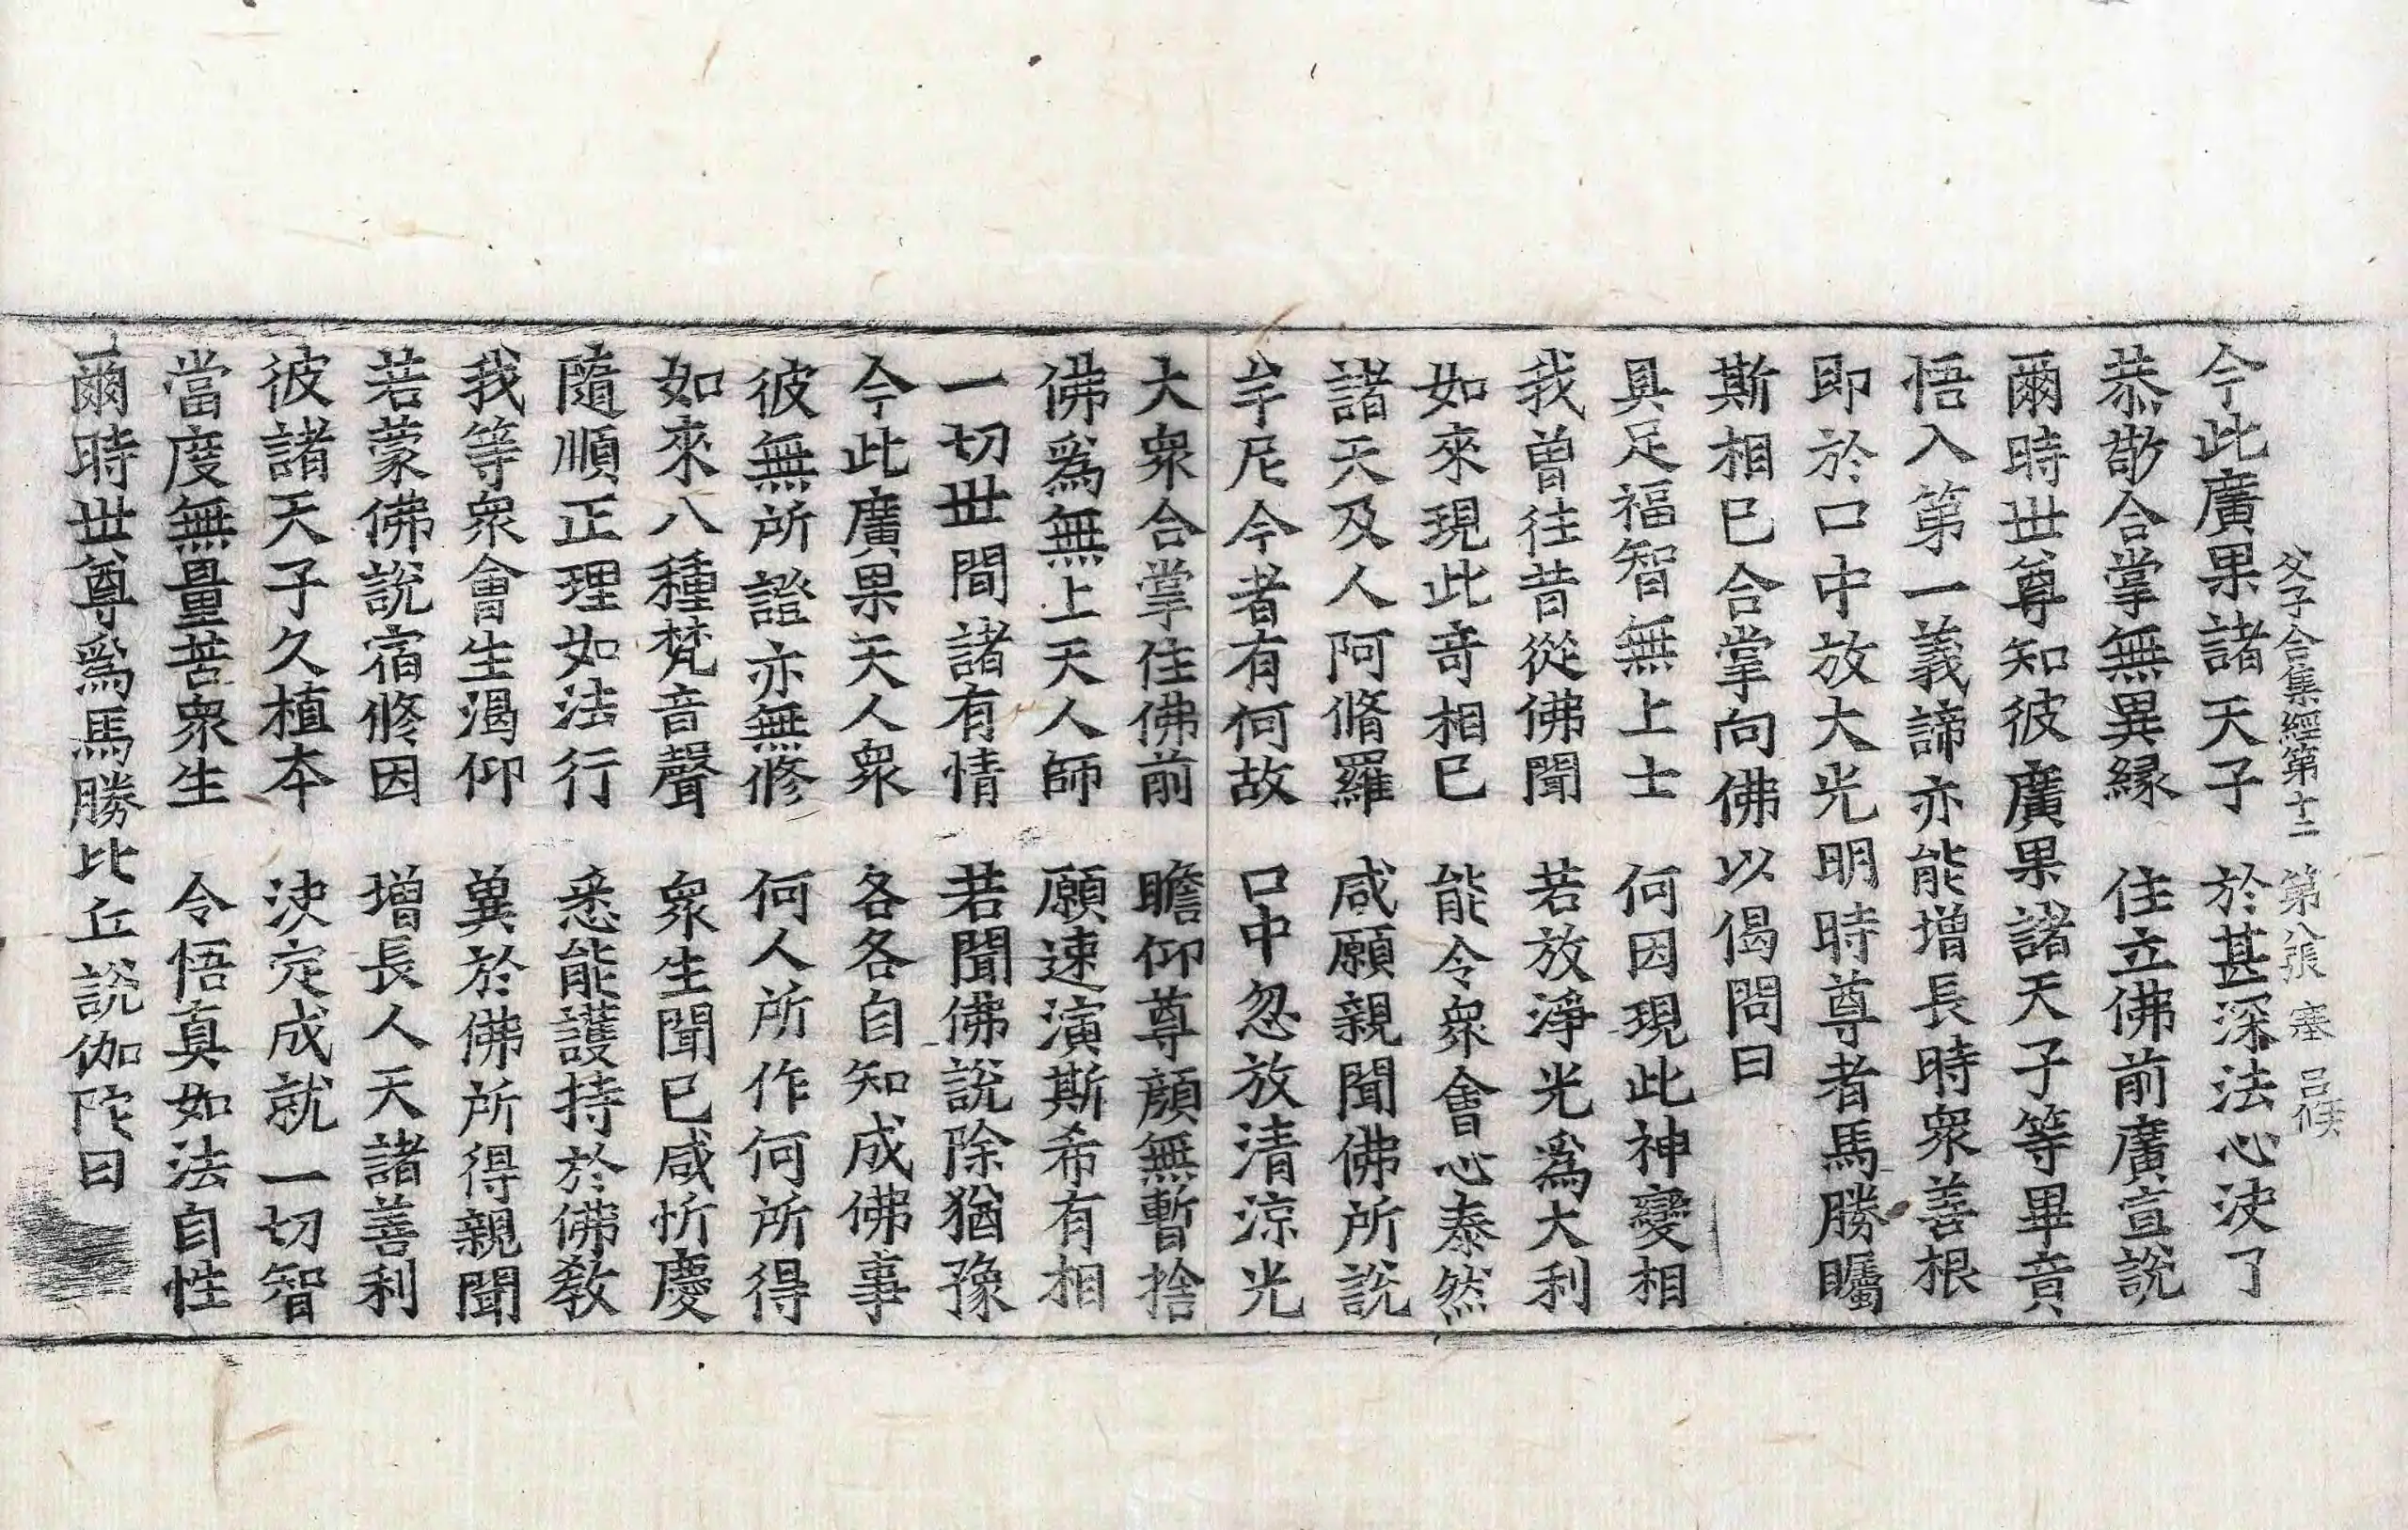 父子合集經第十二 第八張 塞 呂侯
今此廣果諸天子 於甚深法心決了
恭敬合掌無異縁 住立佛前廣宣說
爾時世尊知彼廣果諸天子等畢竟
悟入第一義諦亦能增長時衆善根
即於口中放大光明時尊者馬勝矚
斯相已合掌向佛以偈問曰
具足福智無上士 何因現此神變相
我曾往昔從佛聞 若放淨光爲大利
如來現此奇相已 能令衆會心泰然
諸天及人阿脩羅 咸願親聞佛所說
牟尼今者有何故 口中忽放清涼光
大衆合掌住佛前 瞻仰尊顔無暫捨
佛爲無上天人師 願速演斯希有相
一切世間諸有情 若聞佛說除猶豫
今此廣果天人衆 各各自知成佛事
彼無所證亦無修 何人所作何所得
如來八種梵音聲 衆生聞已咸忻慶
隨順正理如法行 悉能護持於佛教
我等衆會生渴仰 冀於佛所得親聞
若蒙佛說宿修因 增長人天諸善利
彼諸天子久植本 決定成就一切智
當度無量苦衆生 令悟真如法自性
爾時世尊爲馬勝比丘說伽陀曰